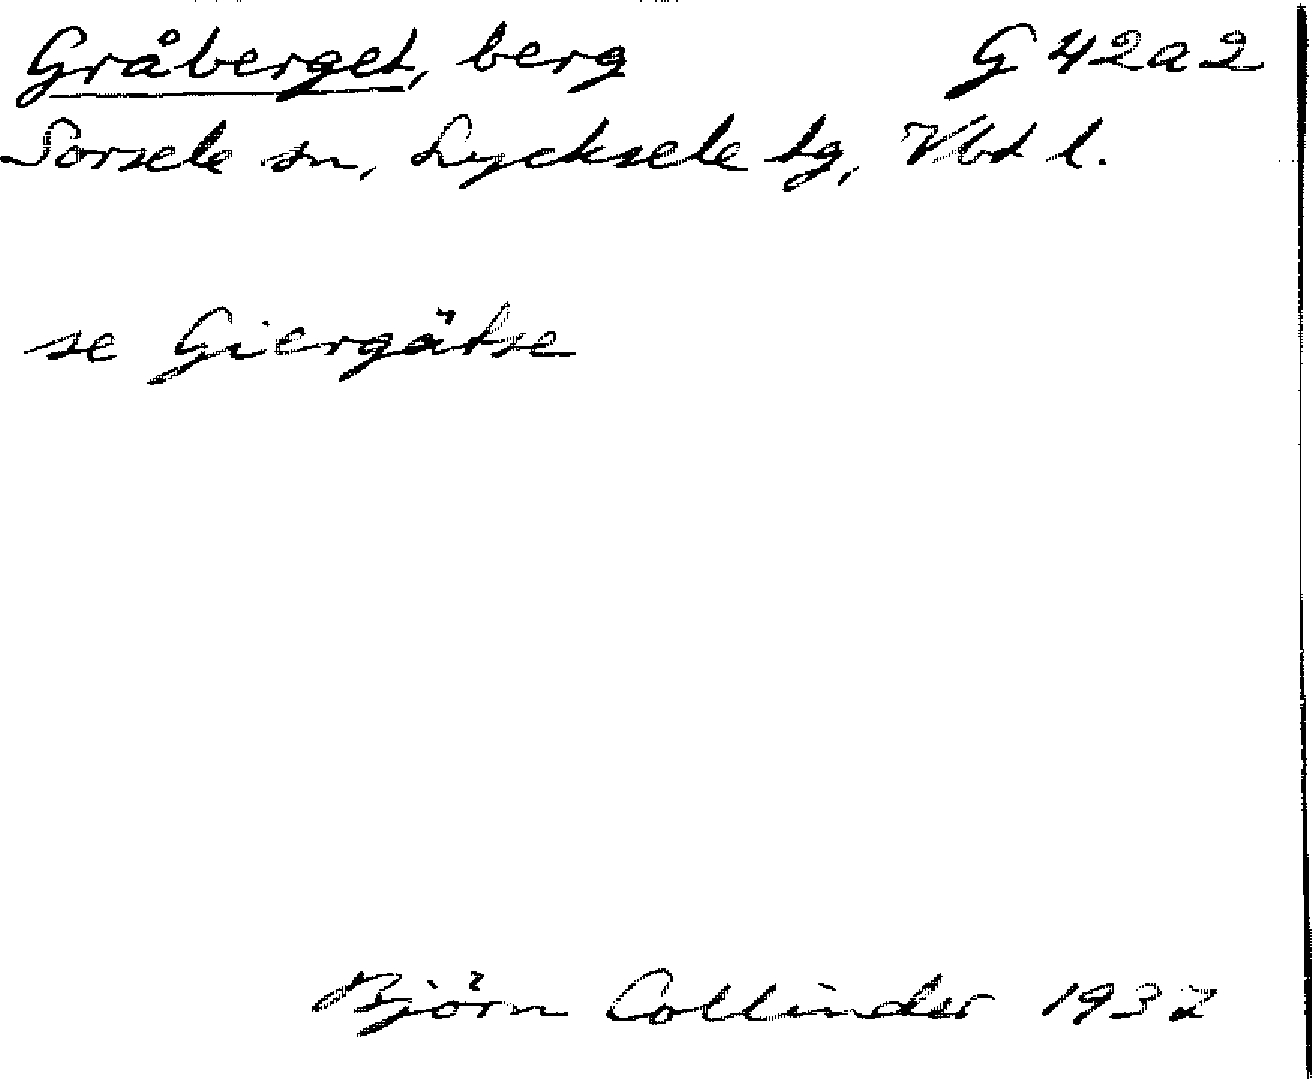 Gråberget, berg G 42a2
Sorsele sn, Lycksele tg, Vbt l.
se Giergätse
Björn Collinder 1932